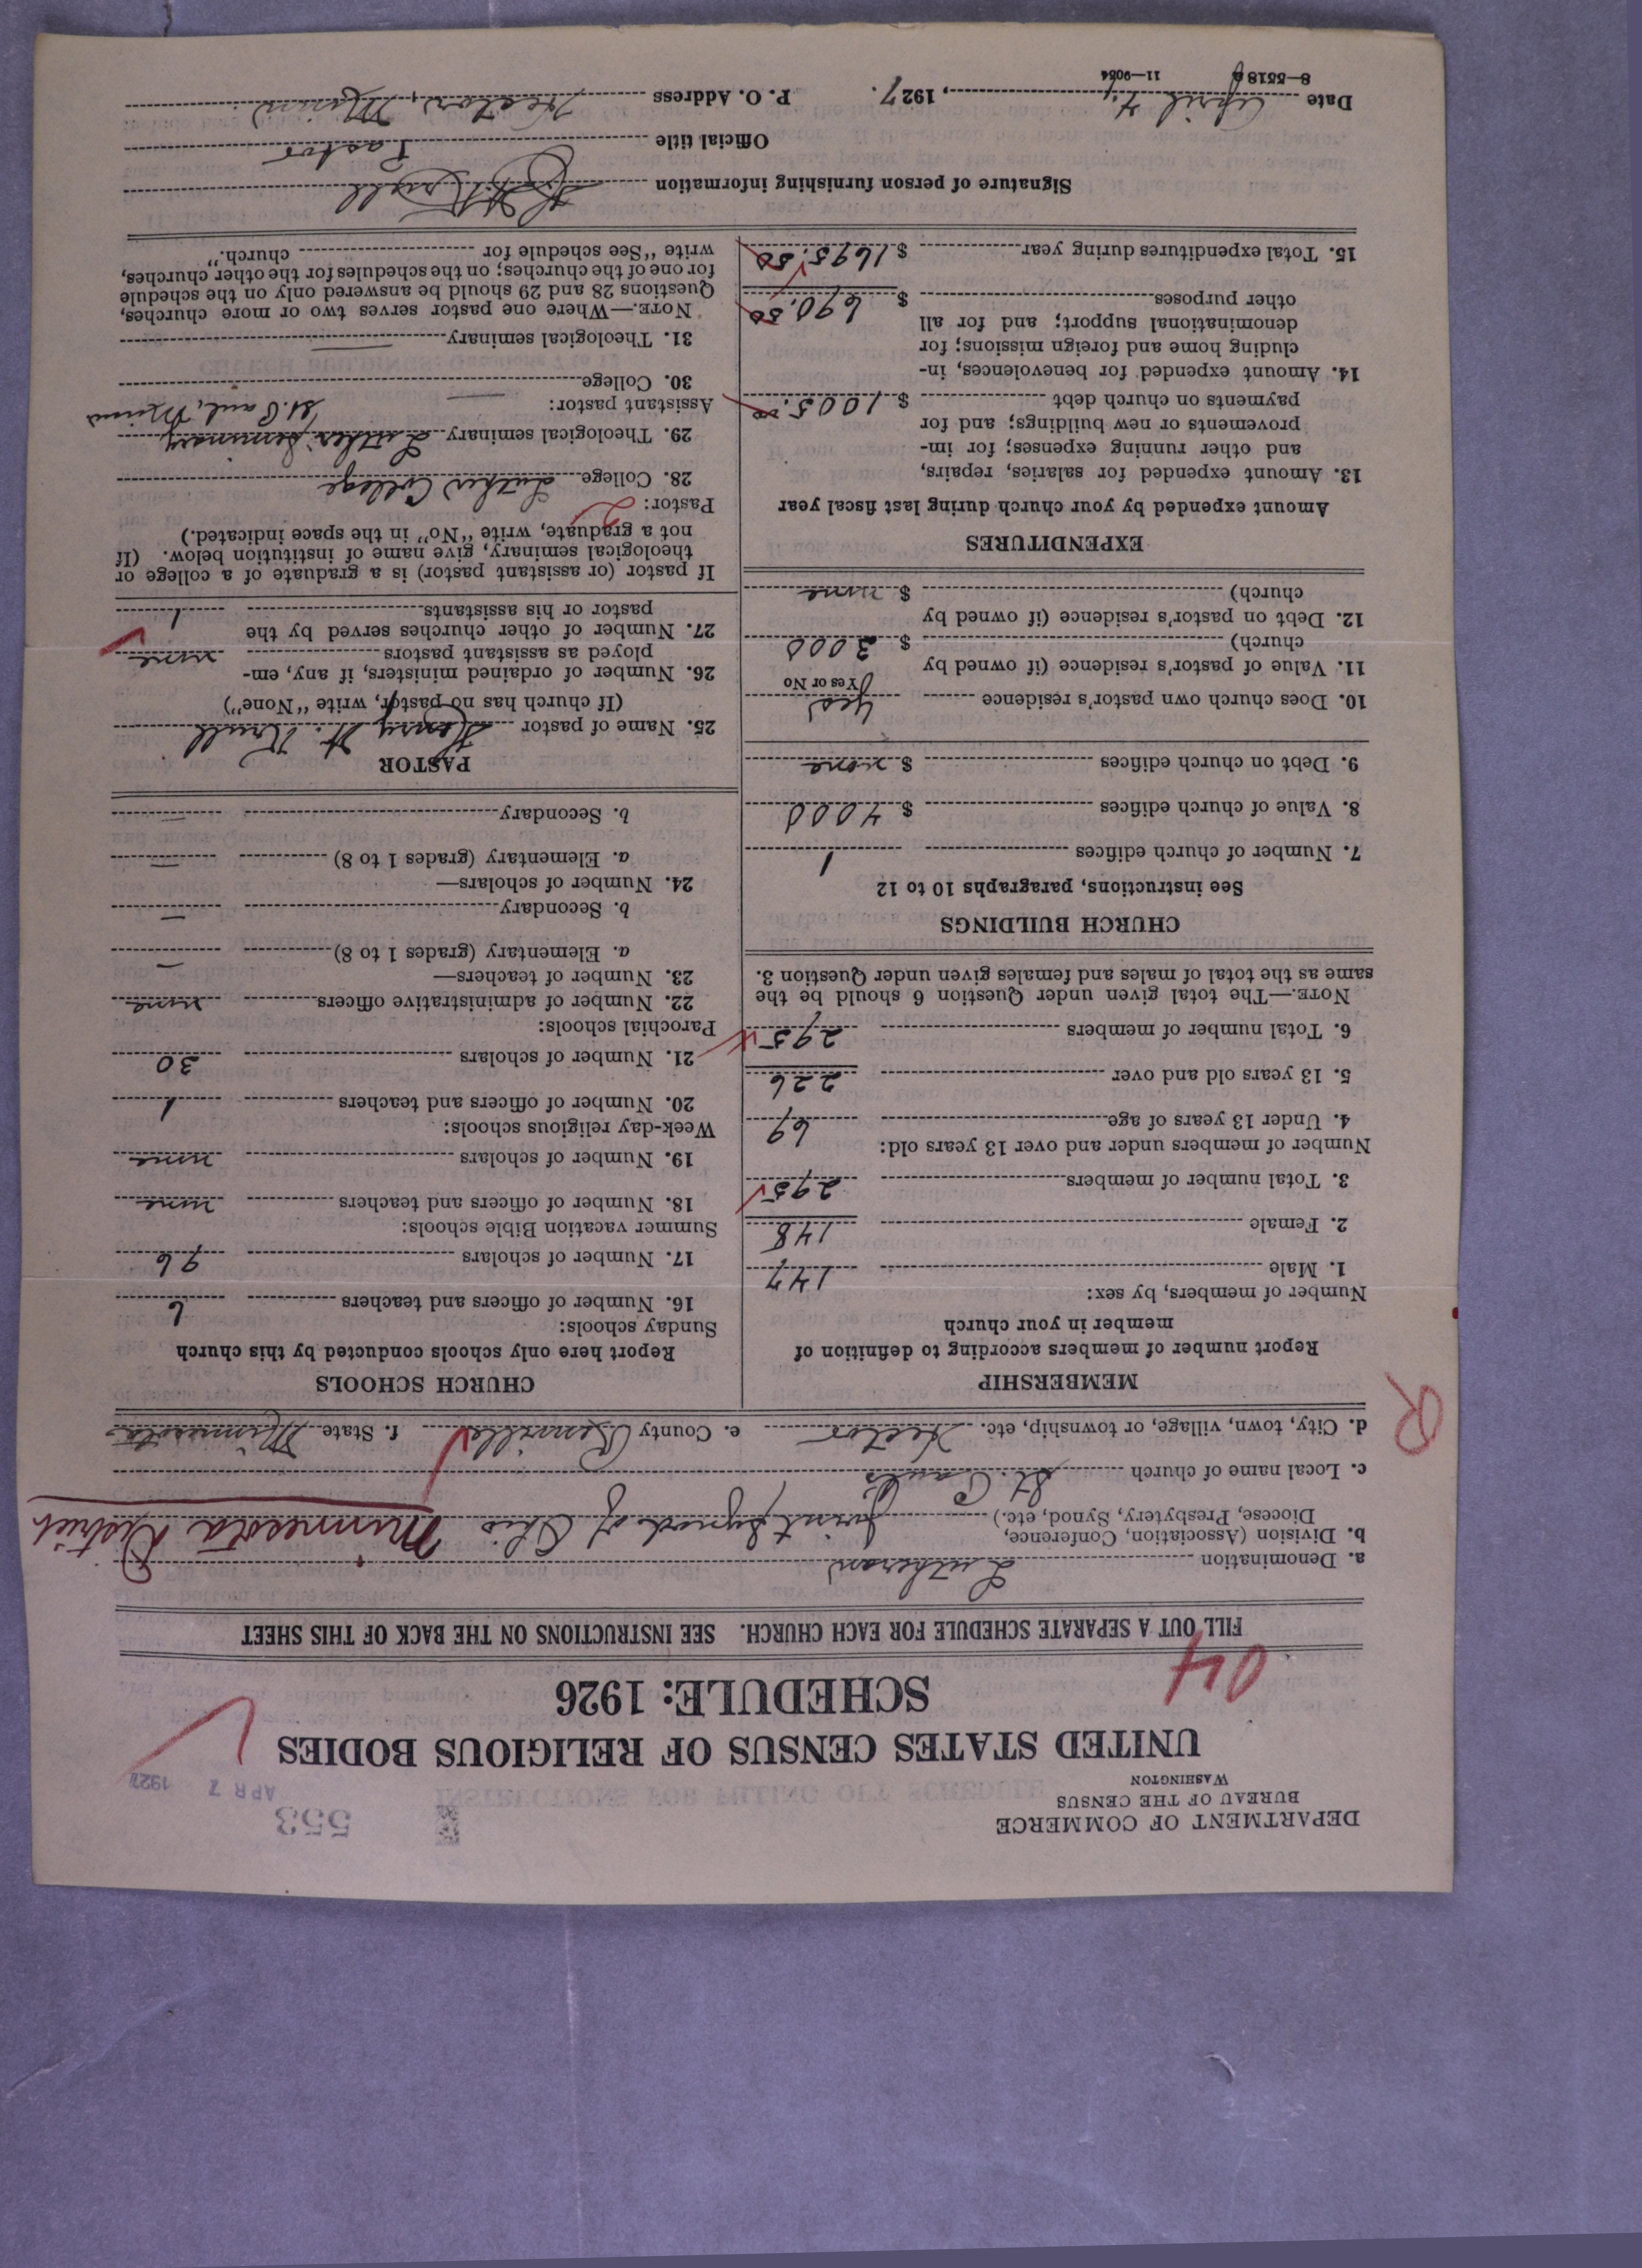 DEPARTMENT OF COMMERCE
BUREAU OF THE CENSUS
WASHINGTON
553
APR 7 1927
UNITED STATES CENSUS OF RELIGIOUS BODIES
SCHEDULE: 1926
04
FILL OUT A SEPARATE SCHEDULE FOR EACH CHURCH. SEE INSTRUCTIONS ON THE BACK OF THIS SHEET
a. Denomination Lutheran
b. Division (Association, Conference, Diocese, Presbytery, Synod, etc.) Joint Synod of Ohio Minnesota District
c. Local name of church St. Paul's
d. City, town, village, or township, etc. Hector e. County Renville f. State Minnesota
R
MEMBERSHIP
Report number of members according to definition of
member in your church
Number of members, by sex:
1. Male 147
2. Female 148
3. Total number of members 295
Number of members under and over 13 years old:
4. Under 13 years of age 69
5. 13 years old and over 226
6. Total number of members 295
NOTE.—The total given under Question 6 should be the
same as the total of males and females given under Question 3.
CHURCH BUILDINGS
See instructions, paragraphs 10 to 12
7. Number of church edifices 1
8. Value of church edifices $ 4000
9. Debt on church edifices $ none
10. Does church own pastor's residence yes
Yes or No
11. Value of pastor's residence (if owned by
church) $ 3000
12. Debt on pastor's residence (if owned by
church) $ none
EXPENDITURES
Amount expended by your church during last fiscal year
13. Amount expended for salaries, repairs,
and other running expenses; for im-
provements or new buildings; and for
payments on church debt $ 1005.00
14. Amount expended for benevolences, in-
cluding home and foreign missions; for
denominational support; and for all
other purposes $ 690.50
15. Total expenditures during year $ 1695.50
CHURCH SCHOOLS
Report here only schools conducted by this church
Sunday schools:
16. Number of officers and teachers 6
17. Number of scholars 96
Summer vacation Bible schools:
18. Number of officers and teachers none
19. Number of scholars none
Week-day religious schools:
20. Number of officers and teachers 1
21. Number of scholars 30
Parochial schools:
22. Number of administrative officers none
23. Number of teachers—
a. Elementary (grades 1 to 8) —
b. Secondary —
24. Number of scholars—
a. Elementary (grades 1 to 8) —
b. Secondary —
PASTOR
25. Name of pastor Henry H. Krull
(If church has no pastor, write "None")
26. Number of ordained ministers, if any, em-
ployed as assistant pastors none
27. Number of other churches served by the
pastor or his assistants 1
If pastor (or assistant pastor) is a graduate of a college or
theological seminary, give name of institution below. (If
not a graduate, write "No" in the space indicated.)
Pastor: 2
28. College Luther College
29. Theological seminary Luther Seminary
St. Paul, Minn
Assistant pastor: —
30. College
31. Theological seminary —
NOTE.—Where one pastor serves two or more churches,
Questions 28 and 29 should be answered only on the schedule
for one of the churches; on the schedules for the other churches,
write "See schedule for church."
Signature of person furnishing information H. H. Krull
Official title Pastor
Date April 4, 1927. P. O. Address Hector, Minn
8—5518 11—9054